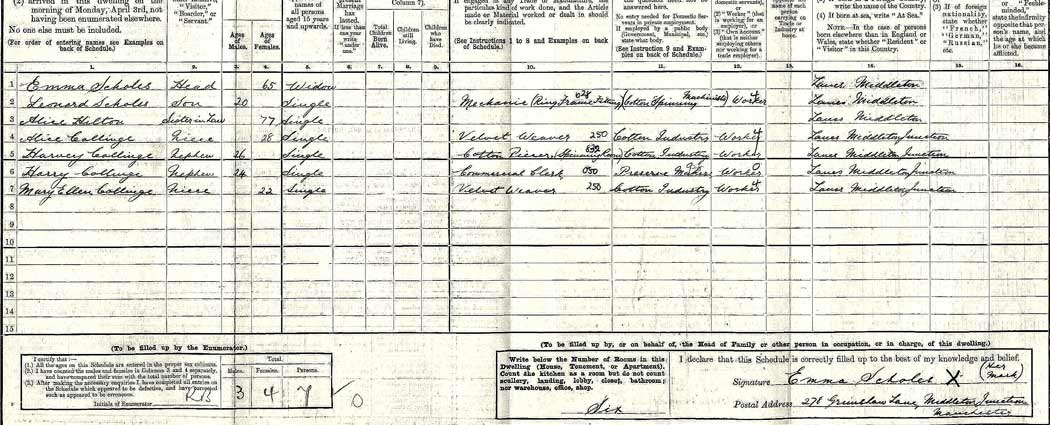 (2) arrived in this dwelling on the
morning of Monday, April 3rd, not
having been enumerated elsewhere.
No one else must be included.
(For order of entering names see Examples on
back of Schedule.)
"Visitor,"
"Boarder," or
"Servant."
Ages
of
Males.
Ages
of
Females.
for
all persons
aged 15 years
and upwards.
Marriage
has
lasted.
Total
Children
Born
Alive.
Children
still
Living.
Children
who
have
Died.
Column 7).
particular kind of work done, and the Article
made or Material worked or dealt in should
be clearly indicated.
(See Instructions 1 to 8 and Examples on back
of Schedule.)
No entry needed for Domestic Ser-
vants in private employment.
If employed by a public body
(Government, Municipal, etc.)
state what body.
(See Instruction 9 and Exam-
ples on back of Schedule.)
(2) "Worker" (that
is working for an
employer), or
(3) "Own Account"
(that is neither
employing others
nor working for a
trade employer).
carrying on
Trade or
Industry at
home.
write the name of the Country.
(4) If born at sea, write "At Sea."
NOTE.—In the case of persons
born elsewhere than in England or
Wales, state whether "Resident" or
"Visitor" in this Country.
(3) If of foreign
nationality,
state whether
"French,"
"German,"
"Russian,"
etc.
"Feeble-
minded,"
state the infirmity
opposite that per-
son's name, and
the age at which
he or she became
afflicted.
1. 2. 3. 4. 5. 6. 7. 8. 9. 10. 11. 12. 13. 14. 15. 16.
1 Emma Scholes Head 65 Widow Lancs Middleton
2 Leonard Scholes Son 20 Single Mechanic (Ring Frame Fitting) Cotton Spinning Machinists Worker Lancs Middleton
3 Alice Hilton Sister in Law 77 Single Lancs Middleton
4 Alice Collinge Niece 28 Single Velvet Weaver 250 Cotton Industry Worker Lancs Middleton Junction
5 Harvey Collinge Nephew 26 Single Cotton Piecer (Spinning Room) Cotton Industry Worker Lancs Middleton Junction
6 Harry Collinge Nephew 24 Single Commercial Clerk 050 Preserve Makers Worker Lancs Middleton Junction
7 Mary Ellen Collinge Niece 22 Single Velvet Weaver 250 Cotton Industry Worker Lancs Middleton Junction
8
9
10
11
12
13
14
15
(To be filled up by the Enumerator.)
I certify that:—
(1.) All the ages on this Schedule are entered in the proper sex columns.
(2.) I have counted the males and females in Columns 3 and 4 separately,
and have compared their sum with the total number of persons.
(3.) After making the necessary enquiries I have completed all entries on
the Schedule which appeared to be defective, and have corrected
such as appeared to be erroneous.
Initials of Enumerator
Total.
Males. Females. Persons.
3 4 7 0
(To be filled up by, or on behalf of, the Head of Family or other person in occupation, or in charge, of this dwelling.)
Write below the Number of Rooms in this
Dwelling (House, Tenement, or Apartment).
Count the kitchen as a room but do not count
scullery, landing, lobby, closet, bathroom;
nor warehouse, office, shop.
Six
I declare that this Schedule is correctly filled up to the best of my knowledge and belief.
Signature Emma Scholes X (Her Mark)
Postal Address 278 Grimshaw Lane, Middleton Junction
Manchester